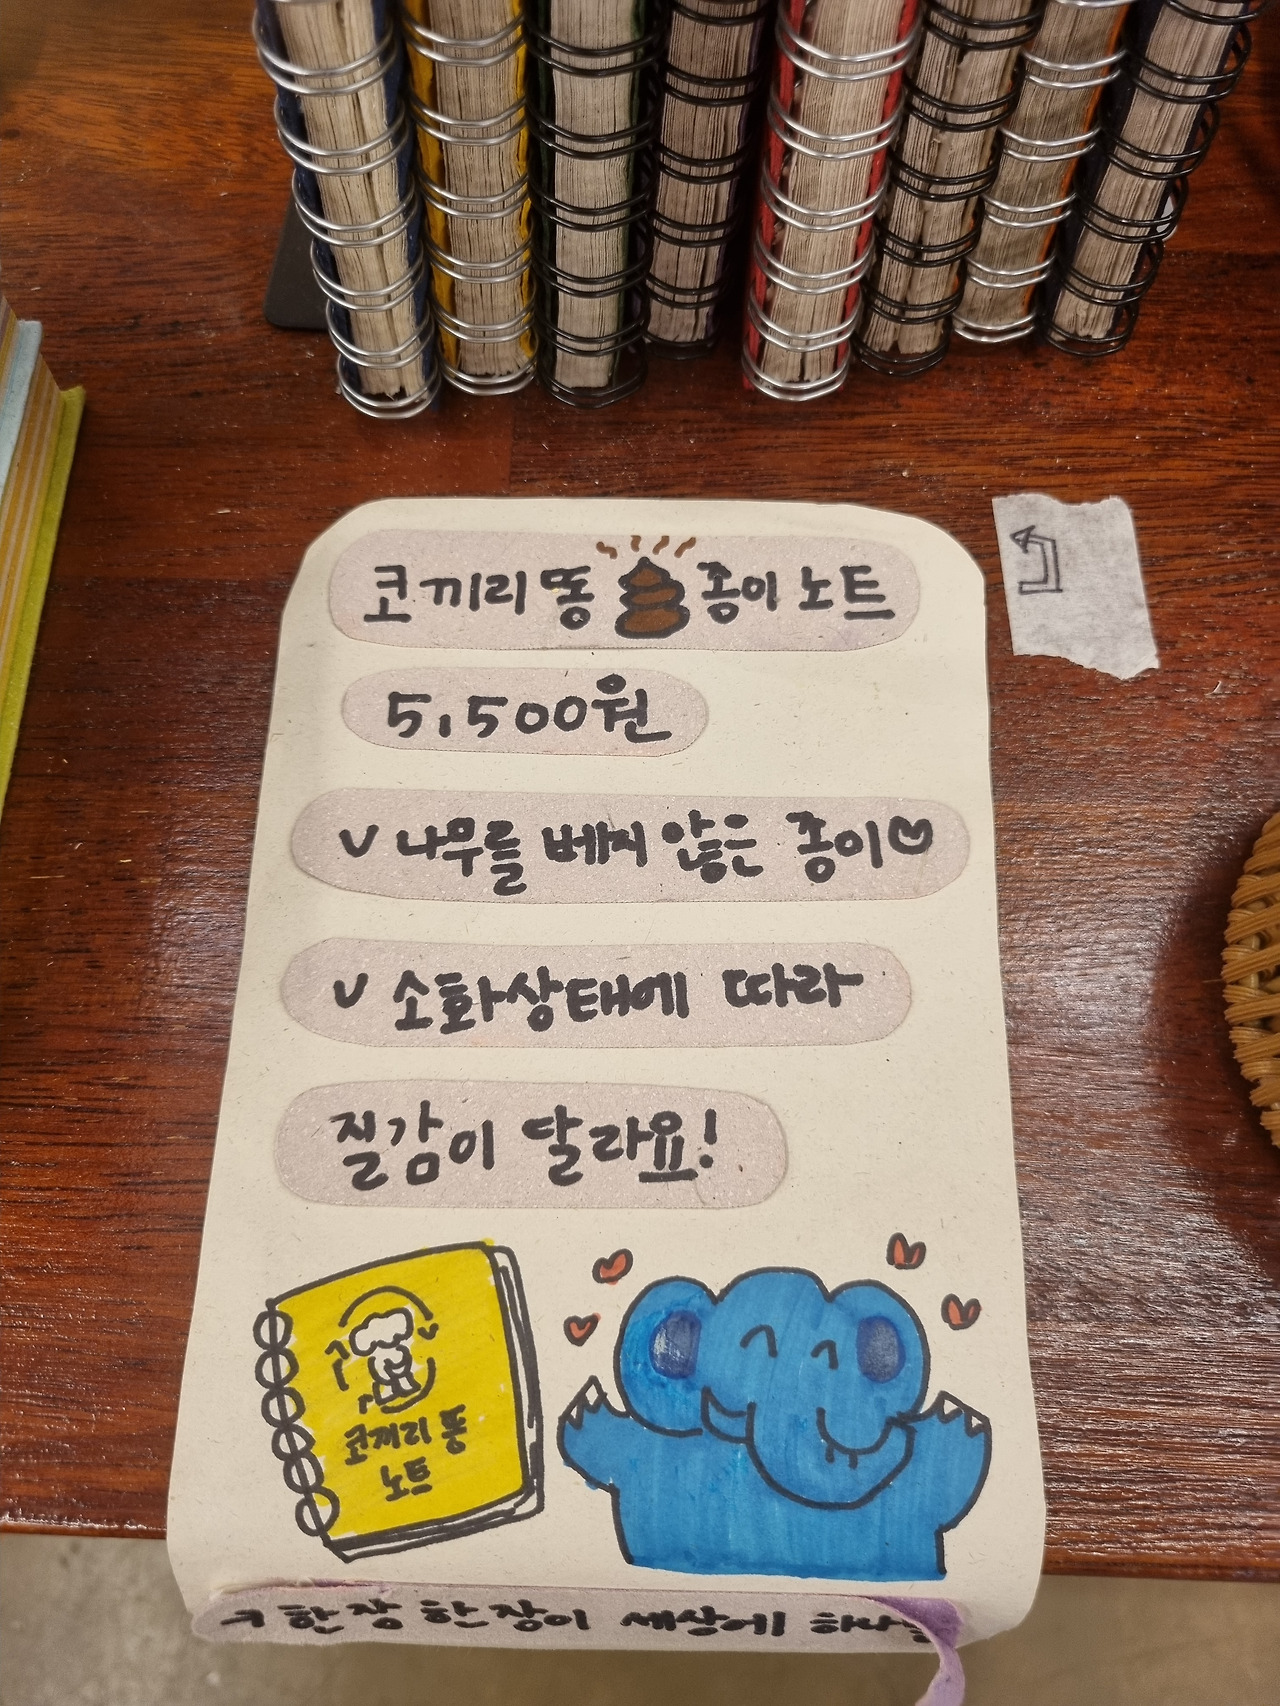 코끼리 똥 종이 노트
5,500원
v 나무를 베지 않은 종이♡
v 소화상태에 따라
질감이 달라요!
코끼리 똥
노트
한장 한장이 세상에